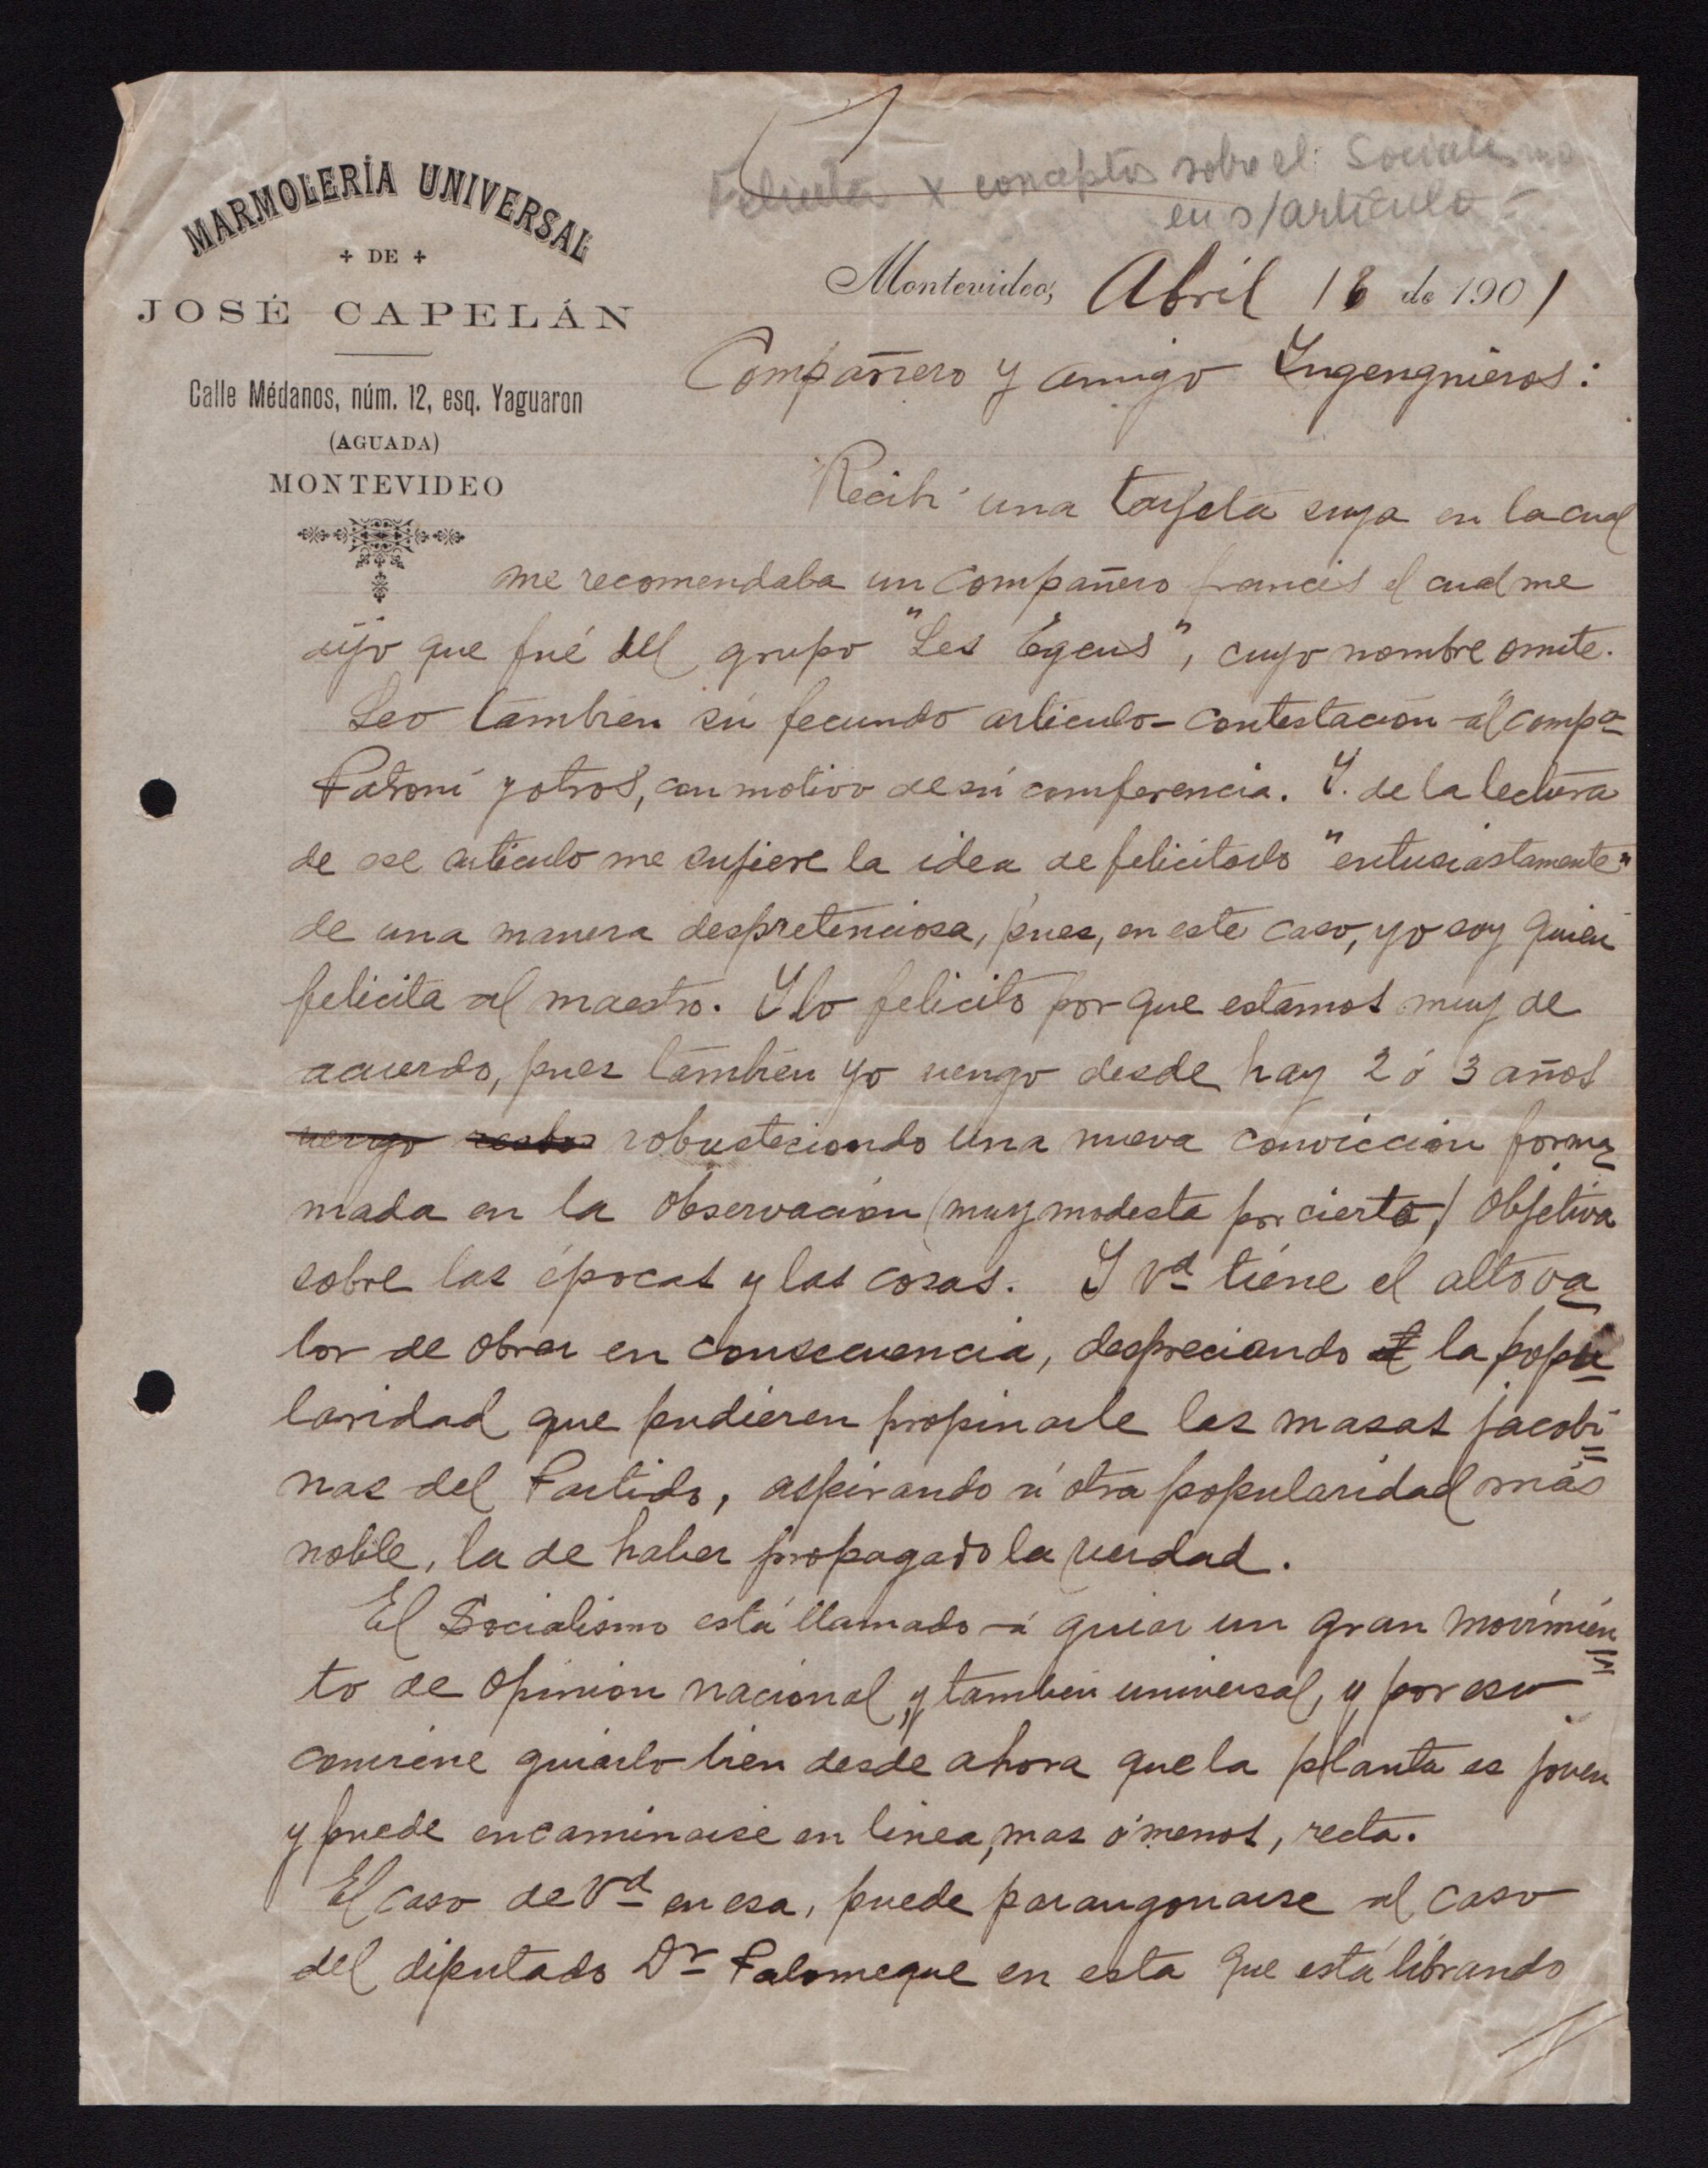 Felicita x conceptos sobre el Socialismo
en s/artículo
MARMOLERÍA UNIVERSAL
DE
JOSÉ CAPELÁN
Calle Médanos, núm. 12, esq. Yaguaron
(AGUADA)
MONTEVIDEO
Montevideo, Abril 16 de 1901
Compañero y amigo Yngengnieros:
Recibí una tarjeta suya en la cual
me recomendaba un compañero francés el cual me
dijo que fué del grupo "Les Égaus", cuyo nombre omite.
Leo también sú fecundo artículo-contestación al compº
Patroni y otros, con motivo de sú comferencia. Y. de la lectura
de ese artículo me sujiere la idea de felicitarlo "entusiastamente"
de una manera despretenciosa, pues, en este caso, yo soy quien
felicita al maestro. Y lo felicito por que estamos muy de
acuerdo, pues también yo vengo desde hay 2 ó 3 años
vengo robusteciondo una nueva convicción forma
mada en la observación (muy modesta por cierto,) objetiva
sobre las épocas y las cosas. Y Vd tiene el alto va
lor de obrar en consecuencia, despreciando la popu
laridad que pudieren propinarle las masas jacobi
nas del Partido, aspirando á otra popularidad más
noble, la de haber propagado la verdad.
El Socialismo está llamado á guiar un gran movimien
to de opinión nacional, y también universal, y por eso
conviene guiarlo bien desde ahora que la planta es joven
y puede encaminarse en linea, mas ó menos, recta.
El caso de Vd en esa, puede parangonarse al caso
del diputado Dr Palomeque en esta que está librando